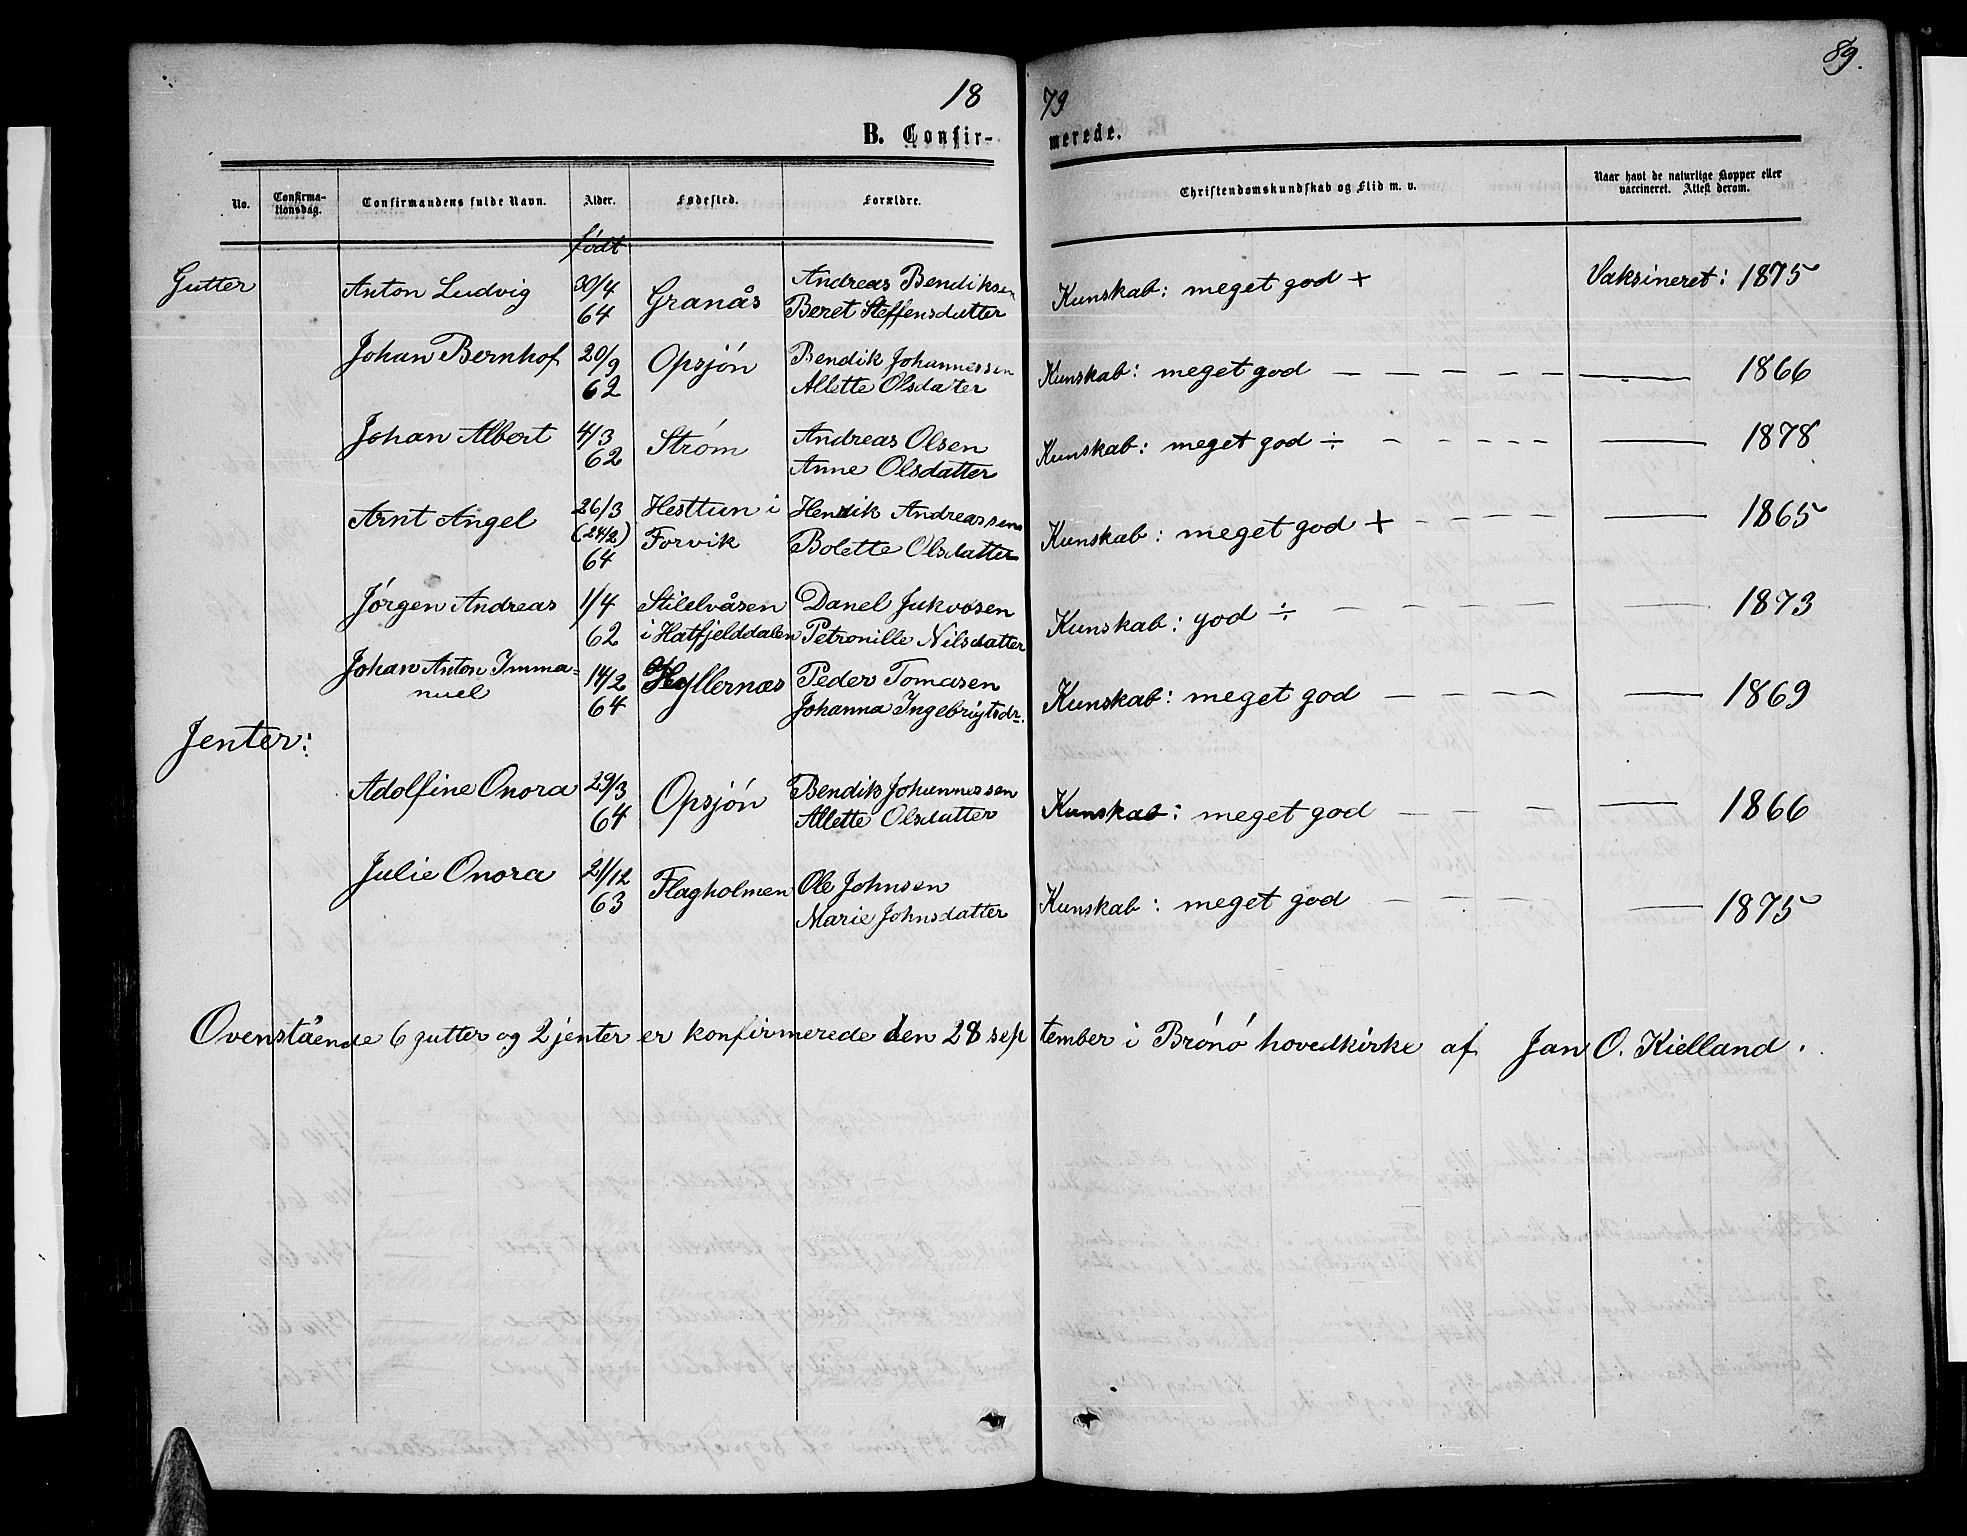 89.
1879
B. Confirmerede.
No. Confirmationsdag. Confirmandens fulde Navn. Alder. Fødested. Forældre. Christendomskundskab og Flid m. v. Naar havt de naturlige Kopper eller vaccineret. Attest derom.
født
Gutter Anton Ludvig 30/4 64 Granås Andreas Bendiksen Beret Steffensdatter Kunskab: meget god + Vaksineret: 1875
Johan Bernhof 20/9 62 Opsjön Bendik Johannessen Allette Olsdatter Kunskab: meget god — — — — — 1866
Johan Albert 4/3 62 Strøm Andreas Olsen Anne Olsdatter Kunskab: meget god ÷ — — — — 1878
Arnt Angel 26/3 (24/2) 64 Hesttun i Forvik Hendik Andreassen Bolette Olsdatter Kunskab: meget god + — — — — 1865
Jörgen Andreas 1/4 62 Stilelvåsen i Hatfjelddalen Danel Jukvosen Petronille Nilsdatter Kunskab: god ÷ — — — — 1873
Johan Anton Immanuel 14/2 64 Hyllernæs Peder Tomasen Johanna Ingebrigtsdr. Kunskab: meget god — — — — 1869
Jenter:
Adolfine Onora 29/3 64 Opsjön Bendik Johannessen Allette Olsdatter Kunskab: meget god — — — — 1866
Julie Onora 21/12 63 Flagholmen Ole Johnsen Marie Johnsdatter Kunskab: meget god — — — — 1875
Ovenstående 6 gutter og 2 jenter er konfirmerede den 28 september i Brönö hovedkirke af Jan O. Kielland.